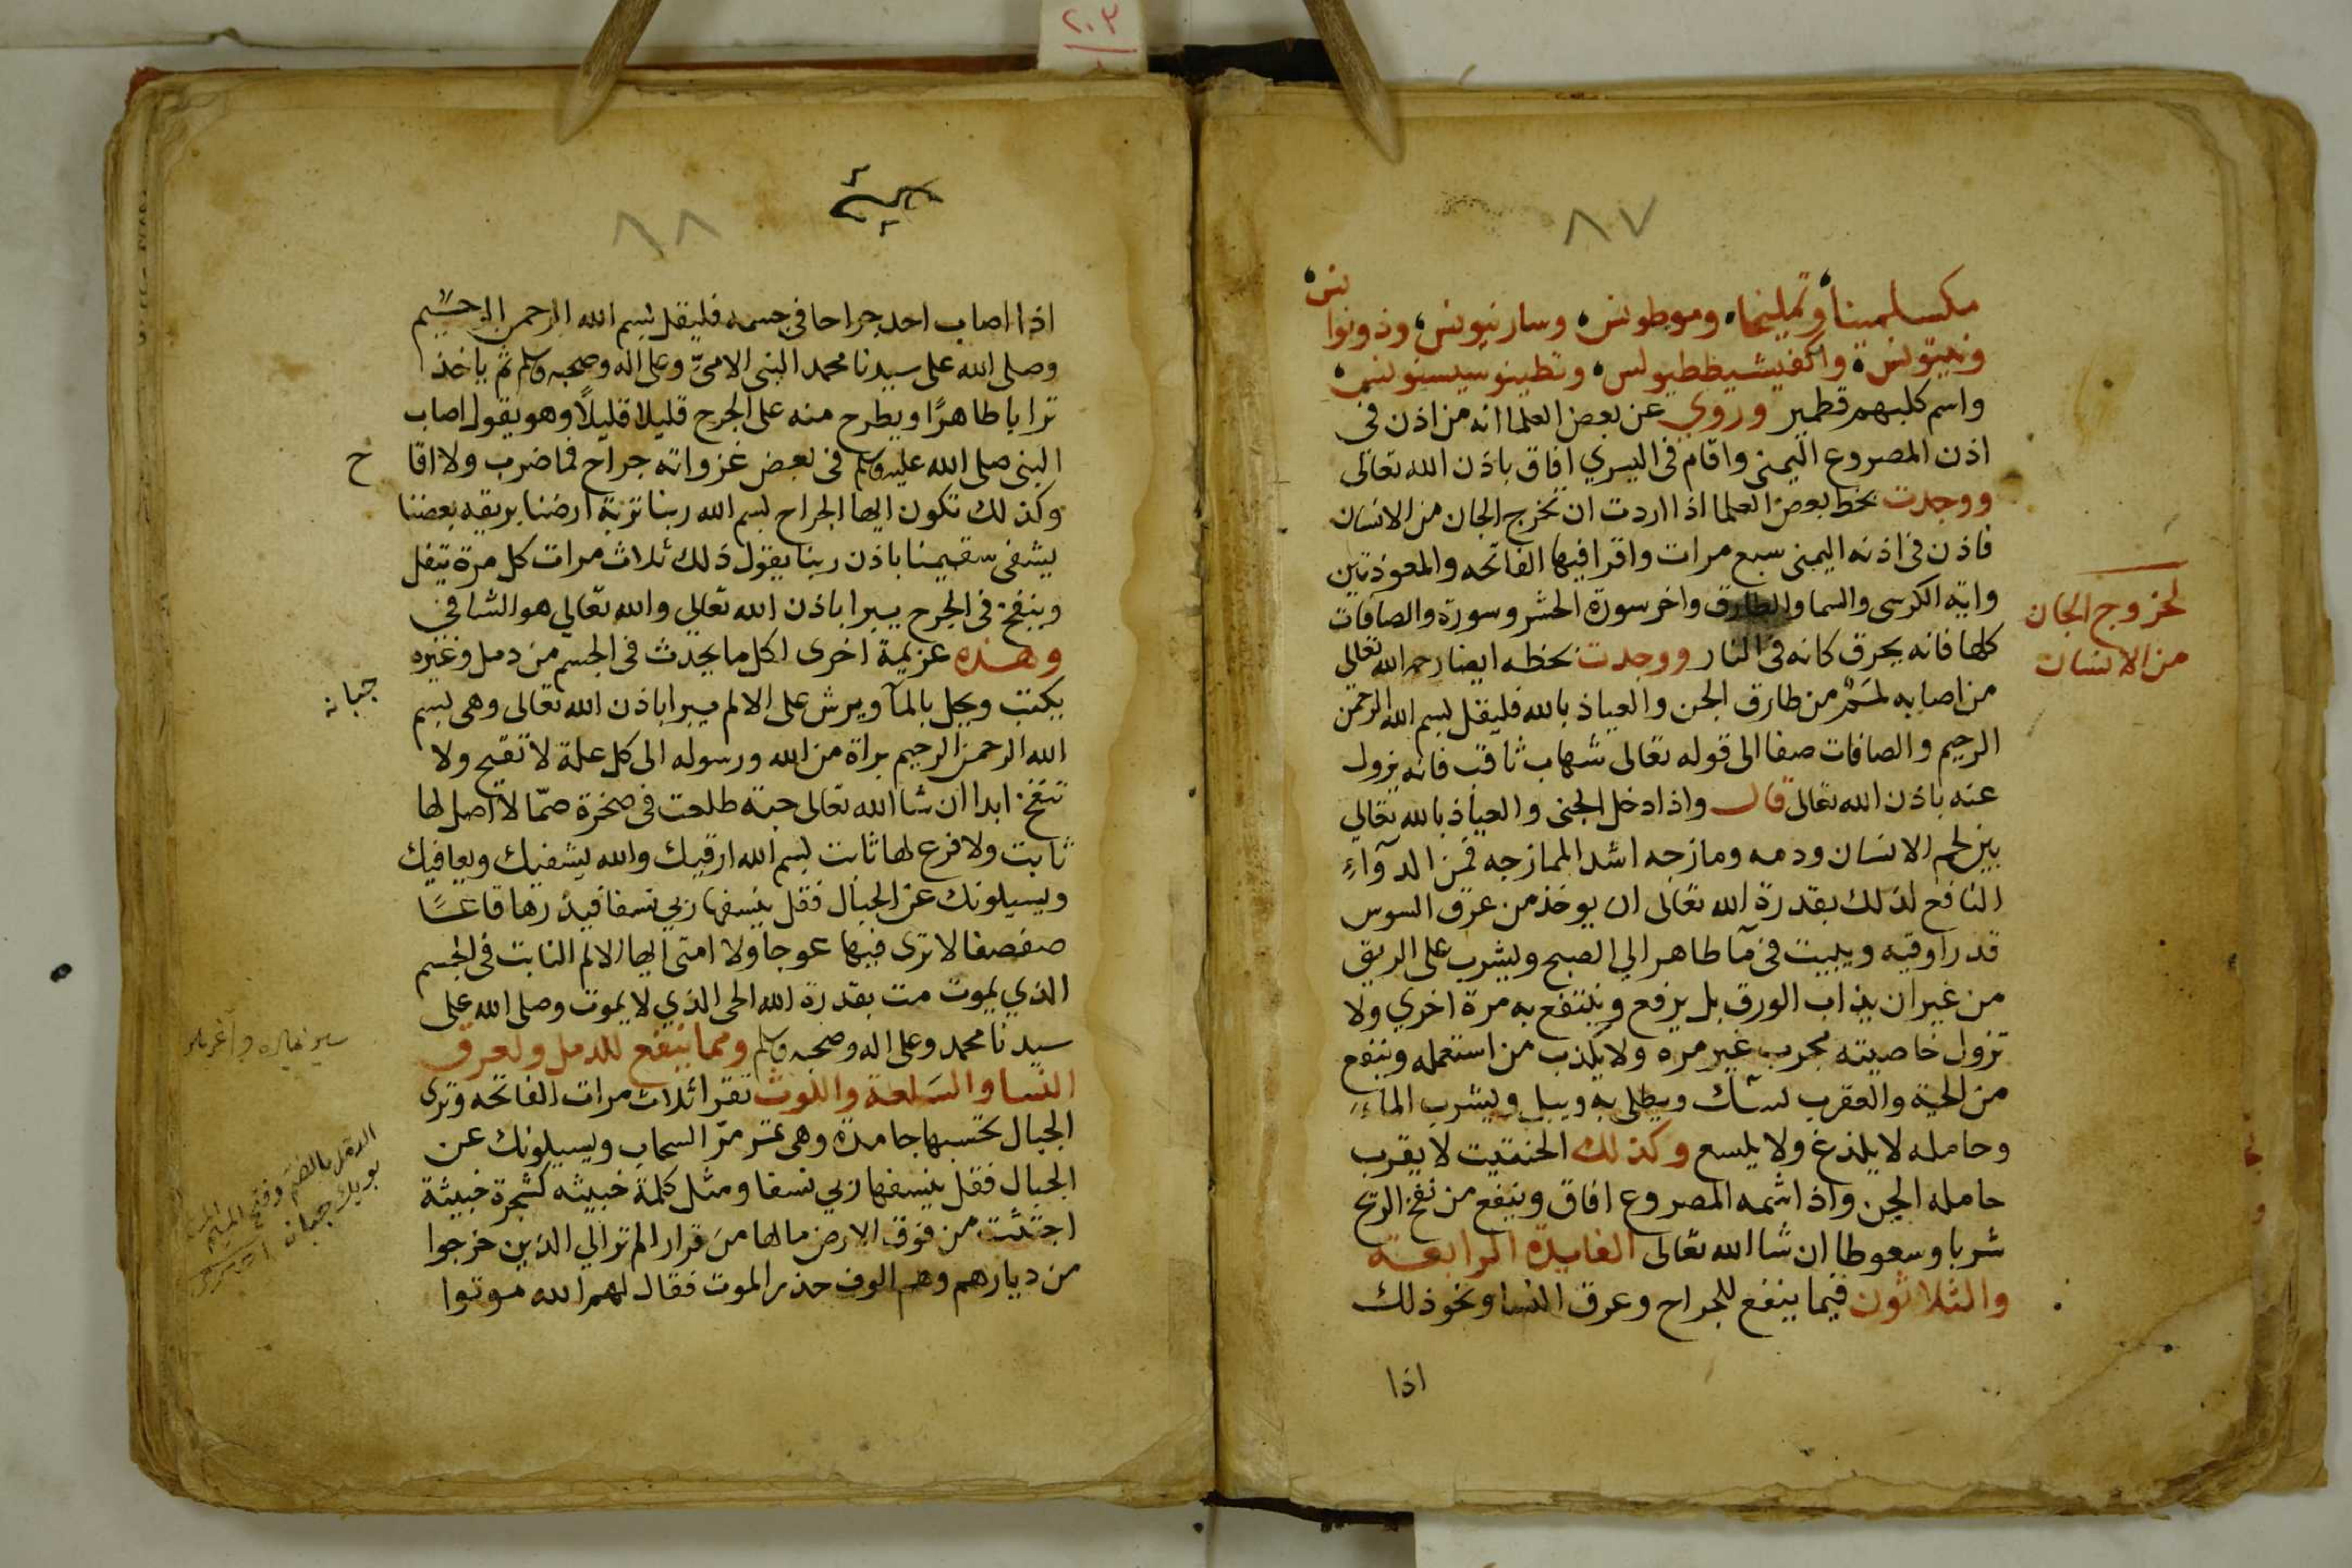 ٢٠٣
٨٧
مكسلمينا وتمليخا ومرطونس وسارنيونس وذونوا
نس
واسم كلبهم قطمير وروي عن بعض العلما انه من اذن في
اذن المصروع اليمنى واقام في اليسري افاق باذن الله تعالى
ووجدت بخط بعض العلما اذا اردت ان تخرج الجان من الانسان
فاذن في اذنه اليمنى سبع مرات واقرا فيها الفاتحه والمعوذتين
واية الكرسى والسما والطارق واخر سورة الحشر وسورة والصافات
كلها فانه يحرق كانه في النار ووجدت بخطه ايضا رحمه الله تعالى
لخروج الجان
من الانسان
من اصابه لمم من طارق الجن والعياذ بالله فليقل بسم الله الرحمن
الرحيم والصافات صفا الى قوله تعالى شهاب ثاقب فانه يزول
عنه باذن الله تعالى قال واذا دخل الجنى والعياذ بالله تعالي
بين لحم الانسان ودمه ومازجه اشد الممازجه فمن الدوآء
النافع لذلك بقدرة الله تعالى ان يوخذ من عرق السوس
قدر اوقيه ويبيت في مآ طاهر الي الصبح ويشرب على الريق
من غير ان يذاب الورق بل يرفع وينتفع به مرة اخري ولا
تزول خاصيته مجرب غير مره ولا يكذب من استعمله وينفع
من الحية والعقرب ويطلى به ويبل ويشرب المآء
وحامله لا يلدغ ولا يلسع وكذلك الحنتيت لا يقرب
حامله الجن واذا شمه المصروع افاق وينفع من نفخ الريح
شربا وسعوطا ان شا الله تعالى الفايدة الرابعة
والثلاثون فيما ينفع للجراح وعرق النسا ونحو ذلك
اذا
٨٨
اذا اصاب احد جراحا في جسمه فليقل بسم الله الرحمن الرحيم
وصلى الله على سيدنا محمد النبى الامىّ وعلى اله وصحبه وسلم ثم ياخذ
ترابا طاهرًا ويطرح منه على الجرح قليلا قليلًا وهو يقول اصاب
النبى صلى الله عليه وسلم فى بعض غزواته جراح فما ضرب ولا اقا
ح
وكذلك تكون ايها الجراح بسم الله ربنا تربة ارضنا بريقه بعضنا
يشفى سقيمنا باذن ربنا يقول ذلك ثلاث مرات كل مرة يتفل
وينفخ فى الجرح يبرا باذن الله تعالي والله تعالي هو الشافى
وهذه عزيمة اخرى لكل ما يحدث فى الجسم من دمل وغيره
يكتب ويحل بالمآ ويرش على الالم يبرا باذن الله تعالى وهى بسم
جبانه
الله الرحمن الرحيم براة من الله ورسوله الى كل علة لا تقيح ولا
تنفخ ابدا ان شا الله تعالى حبة طلعت فى صخرة صمّا لا اصل لها
ثابت ولا فرع لها ثابت بسم الله ارقيك والله يشفيك ويعافيك
ويسيلونك عن الجبال فقل ينسفها ربي نسفا فيذرها قاعًا
صفصفا لا ترى فيها عوجا ولا امتى ايها الالم النابت فى الجسم
الذي يموت مت بقدرة الله الحى الذي لا يموت وصلى الله على
سيدنا محمد وعلى اله وصحبه وسلم ومما ينفع للدمل ولعرق
النسا والسلعة واللوث تقرا ثلاث مرات الفاتحه وترى
الجبال تحسبها جامدة وهى تمر مرّ السحاب ويسيلونك عن
الجبال فقل ينسفها ربي نسفا ومثل كلمة خبيثه كشجرة خبيثة
اجتثت من فوق الارض مالها من قرار الم تر الي الذين خرجوا
من ديارهم وهم الوف حذر الموت فقال لهم الله موتوا
الدمل بالضم وفتح الميم